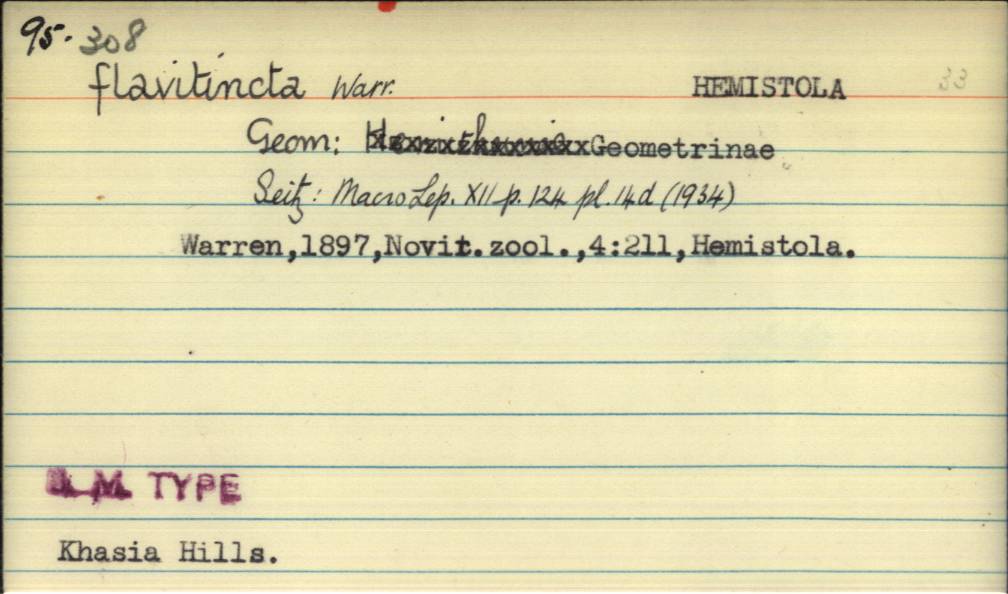 95. 308
flavitincta Warr. HEMISTOLA 33
Geom: Geometrinae
Seitz: Macro Lep. XII p. 124 pl. 14d (1934)
Warren,1897,Novit.zool.,4:211,Hemistola.
B.M. TYPE
Khasia Hills.